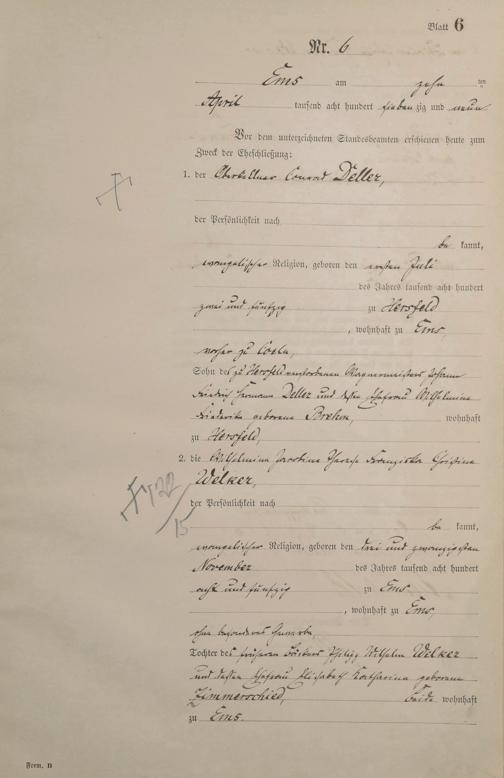 Blatt 6
Nr. 6
Ems am zehn ten
April tausend acht hundert sieben zig und neun
Vor dem unterzeichneten Standesbeamten erschienen heute zum
Zweck der Eheschließung:
1. der Oberkellner Conrad Deller,
der Persönlichkeit nach
be kannt,
evangelischer Religion, geboren den ersten Juli
des Jahres tausend acht hundert
zwei und fünfzig zu Hersfeld
, wohnhaft zu Ems,
vorher zu Coeln,
Sohn des zu Hersfeld verstorbenen Wagnermeisters Johann
Friedrich Hermann Deller und dessen Ehefrau Wilhelmine
Friederike geborene Brehm, wohnhaft
zu Hersfeld,
2. die Wilhelmina Jacobina Therese Franziska Christina
Welker,
der Persönlichkeit nach
be kannt,
evangelischer Religion, geboren den drei und zwanzigsten
November des Jahres tausend acht hundert
acht und fünfzig zu Ems
, wohnhaft zu Ems,
ohne besonderes Gewerbe,
Tochter des früheren Bäckers Philipp Wilhelm Welker
und dessen Ehefrau Elisabeth Katharina geborene
Zimmerschied, beide wohnhaft
zu Ems.
Form. B